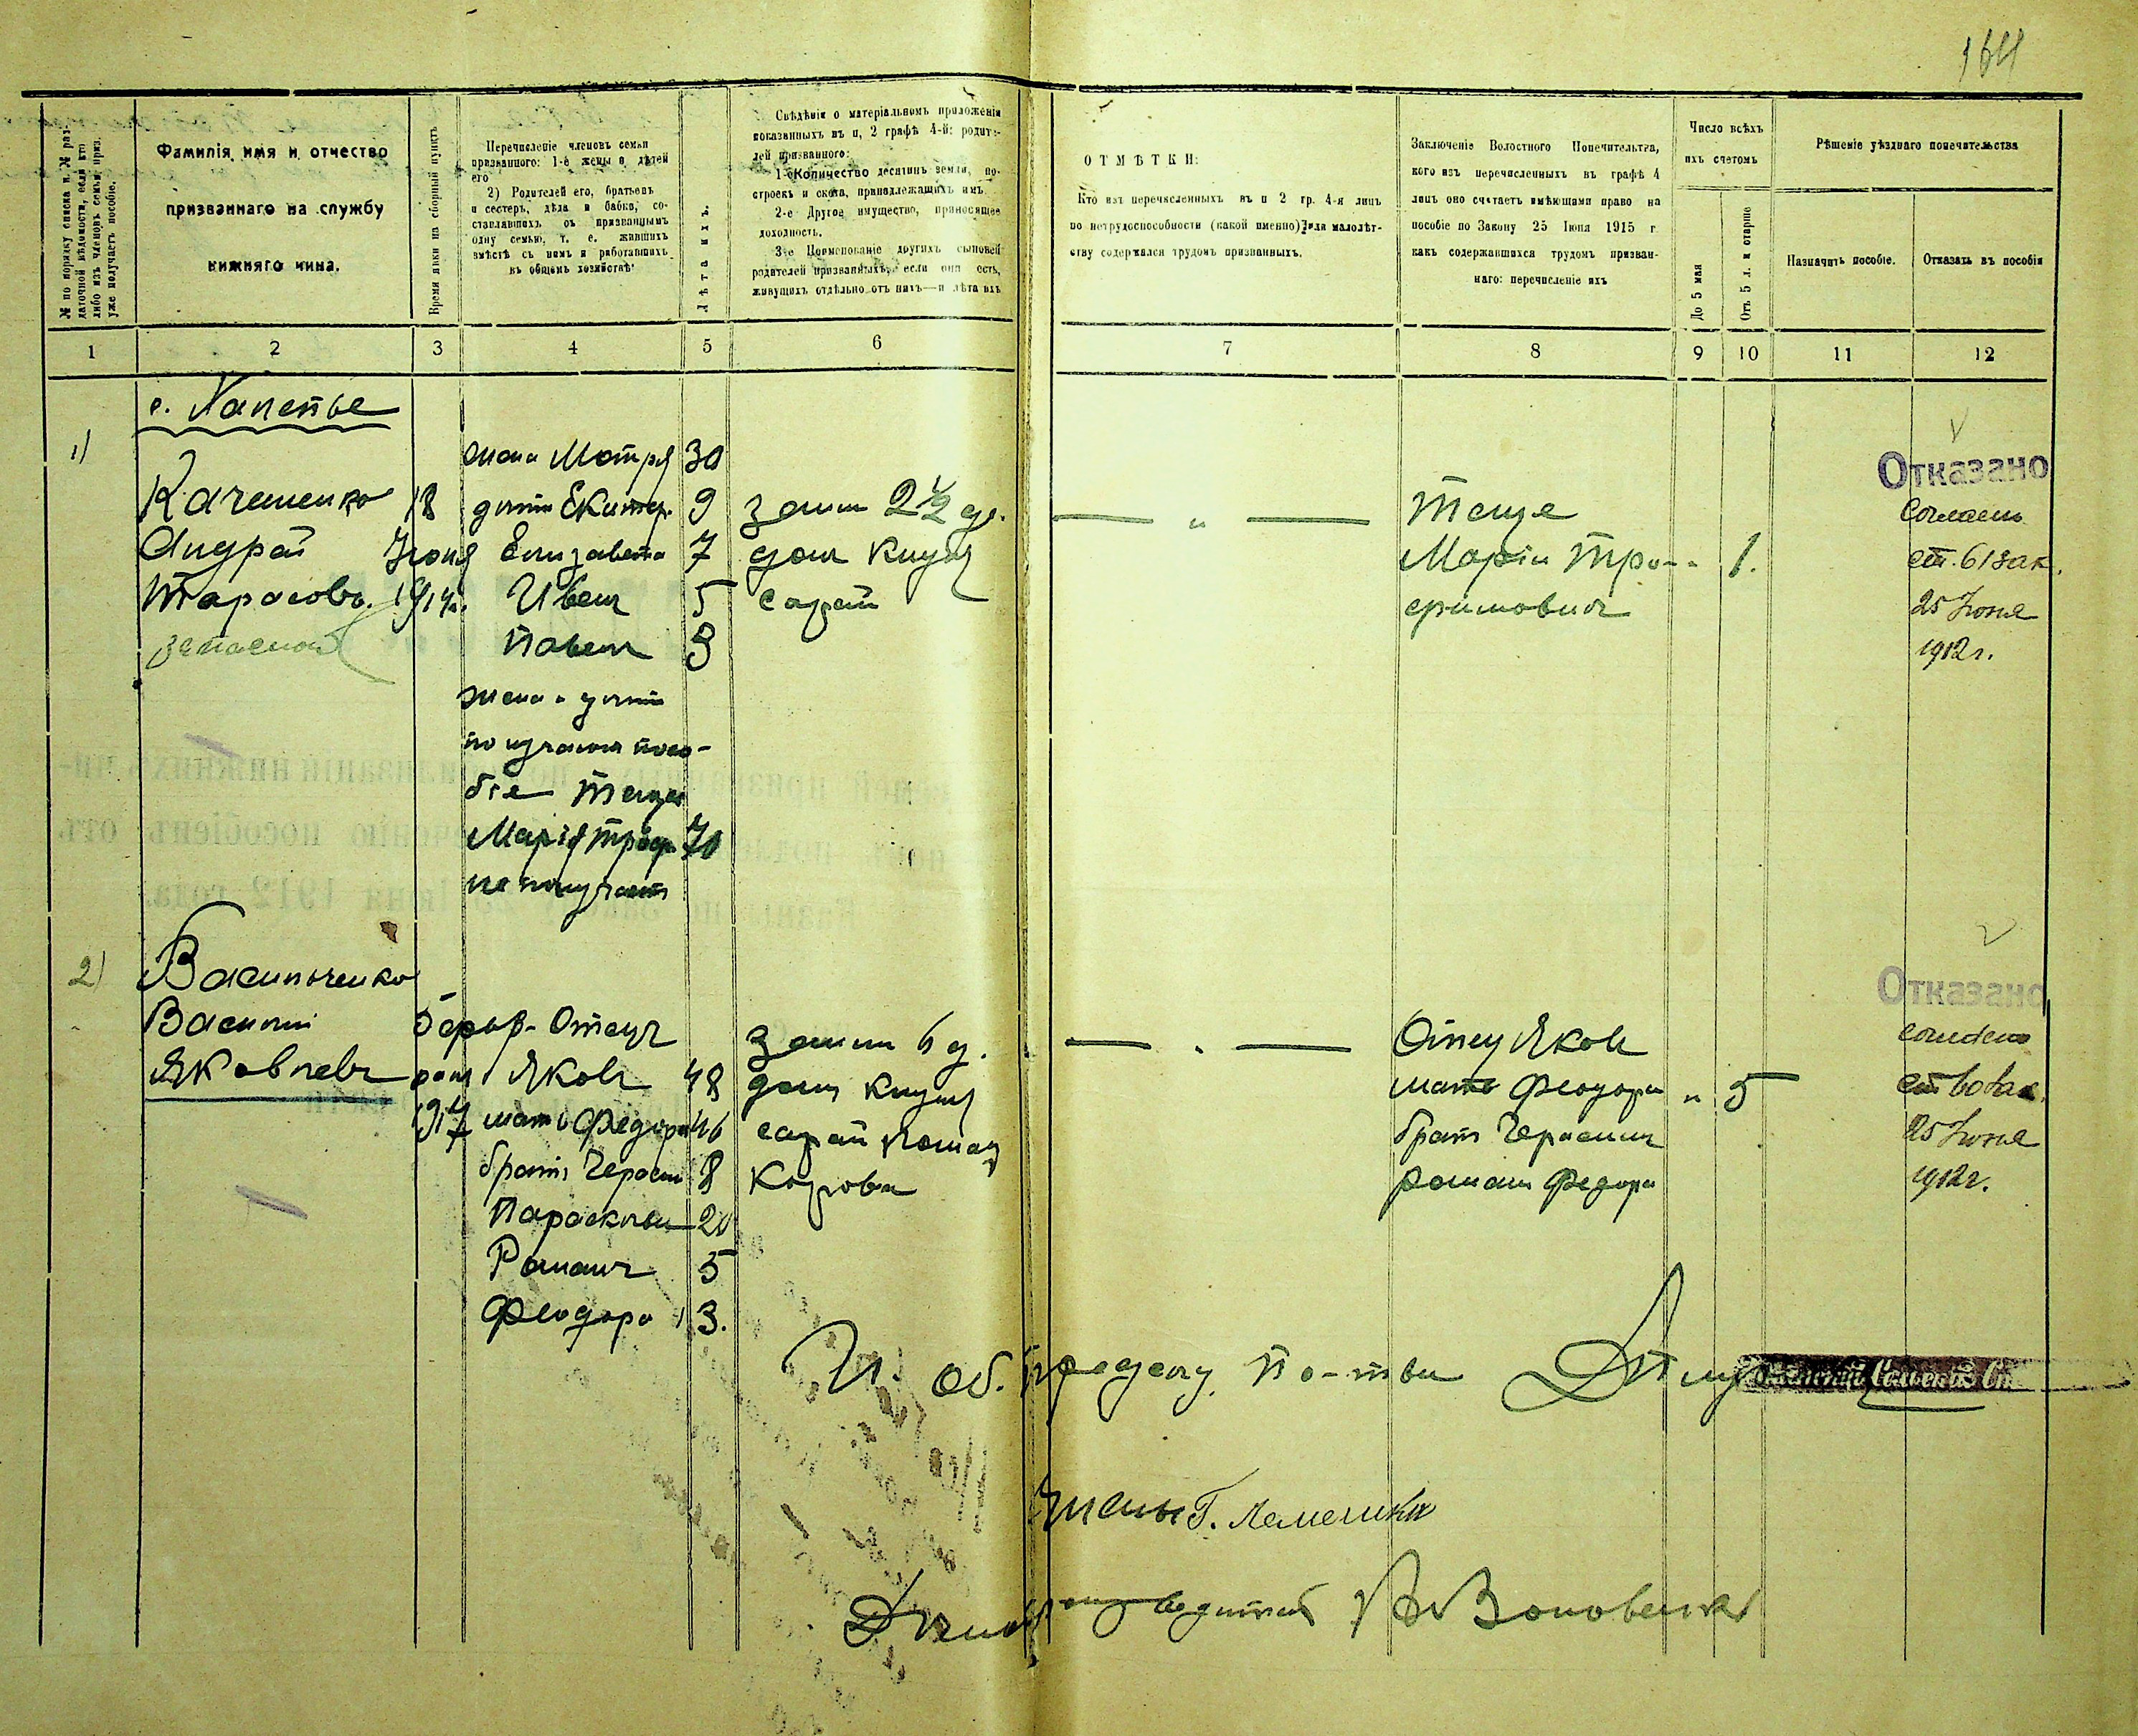 164
№ по порядку списка и № раз-
даточной вѣдомости, если кто
либо изъ членовъ семьи приз.
уже получаетъ пособіе.
Фамилія имя и отчество
призваннаго на службу
нижняго чина.
Время явки на сборный пунктъ
Перечисленіе членовъ семьи
призваннаго: 1-е жены и дѣтей
его
2) Родителей его, братьевъ
и сестеръ, дѣда и бабки, со-
ставлявшихъ съ призваннымъ
одну семью, т. е. жившихъ
вмѣстѣ съ нимъ и работавшихъ
въ общемъ хозяйствѣ
Лѣта ихъ.
Свѣдѣнія о матеріальномъ приложеніи
показанныхъ въ п, 2 графѣ 4-й: родите-
лей призваннаго:
1-е Количество десятинъ земли, по-
строекъ и скота, принадлежащихъ имъ.
2-е Другое имущество, приносящее
доходность.
3-е Поименованіе другихъ сыновей
родителей призванныхъ, если они есть,
живущихъ отдѣльно отъ нихъ—и лѣта ихъ
ОТМѢТКИ:
Кто изъ перечисленныхъ въ п 2 гр. 4-я лицъ
по нетрудоспособности (какой именно) или малолѣт-
ству содержался трудомъ призванныхъ.
Заключеніе Волостного Попечительтва,
кого изъ перечисленныхъ въ графѣ 4
лицъ оно считаетъ имѣющими право на
пособіе по Закону 25 Іюня 1915 г
какъ содержавшихся трудомъ призван-
наго: перечисленіе ихъ
Число всѣхъ
ихъ счетомъ
До 5 мая
Отъ 5 л. и старше
Рѣшеніе уѣзднаго попечательства
Назначить пособіе.
Отказать въ пособіи
1 2 3 4 5 6 7 8 9 10 11 12
1)
жена Мотря 30
Отказано
18 дѣти Екатер. 9 земли 2½ де. — „ — Теще
Согласно
Андрей Іюня Елизавета 7 домъ Марія Тро- 1.
ст. 61 зак.
Тарасовъ. 1914г. Иванъ 5 сарай фимович
25 Іюня
запасной Павелъ 3
1912 г.
жена и дѣти
получаютъ посо-
біе теща
Марія Троф 70
не получаетъ
2) Васильченко
Отказано
Василій Отецъ земли 6 д. — „ — Отцу Яков
Согласно
Яковлевъ Яковъ 48 домъ мать Феодора „ 5
1917 мать Федора 46 сарай лошад братъ Герасим
25 Іюня
братъ Герасим 8 Корова Роман Федора
1912 г.
Параскева 20
Романъ 5
Феодора 3.
И. об. Председ. По-тва
Члены Г. Лемешка